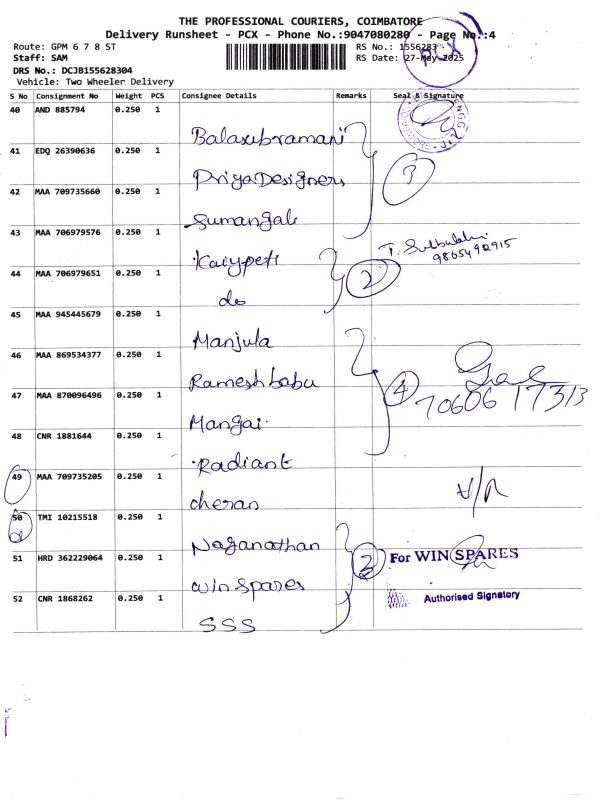 THE PROFESSIONAL COURIERS, COIMBATORE
Delivery Runsheet - PCX - Phone No.:9047080280 - Page No.:4
Route: GPM 6 7 8 ST RS No.: 1556283
Staff: SAM RS Date: 27-May-2025
DRS No.: DCJB155628304
Vehicle: Two Wheeler Delivery
PCX
S No Consignment No Weight PCS Consignee Details Remarks Seal & Signature
40 AND 885794 0.250 1 Balasubramani
41 EDQ 26390636 0.250 1 Priya Designers
3
42 MAA 709735660 0.250 1 Sumangali
43 MAA 706979576 0.250 1
9865492915
44 MAA 706979651 0.250 1 do
2
45 MAA 945445679 0.250 1 Manjula
46 MAA 869534377 0.250 1 Rameshbabu
4
7060617313
47 MAA 870096496 0.250 1 Mangai
48 CNR 1881644 0.250 1 Radiant
49 MAA 709735205 0.250 1 cheran
50 TMI 10215518 0.250 1 Naganathan
51 HRD 362229064 0.250 1 win spares
For WIN SPARES
Authorised Signatory
52 CNR 1868262 0.250 1 SSS